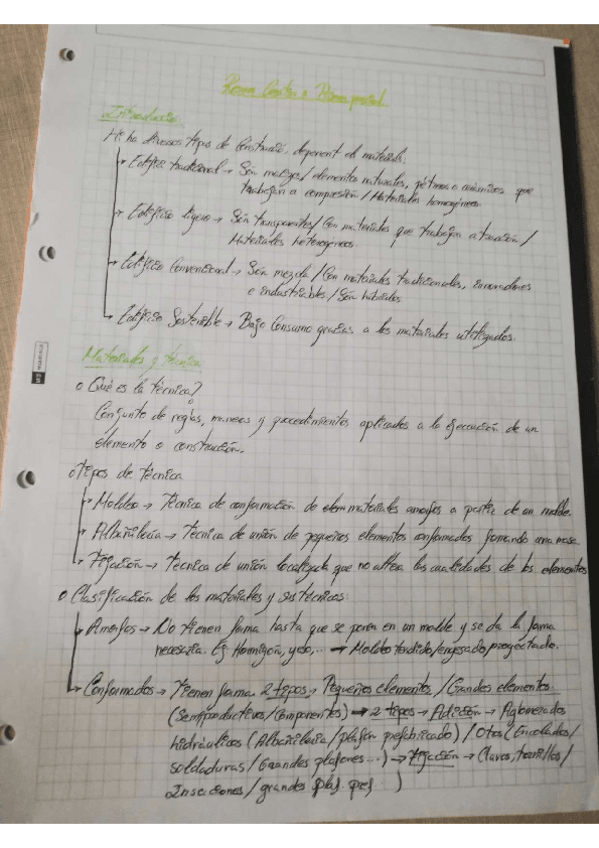 Resum Constru. Primer parcial
Introducció
Hi ha diversos tipus de Construcció, depenent el material.
Edifici tradicional → Són massissos / elementos naturales, pétreos o cerámicos que
trabajan a compresión / Materiales homogéneos.
Edificio ligero → Són transparentes / Con materiales que trabajan a tracción /
Materiales heterogéneos.
Edificio Convencional → Són mezcla / Con materiales tradicionales, innovadores
e industriables / Són híbridos
Edificio Sostenible → Bajo Consumo gracias a los materiales utilizados.
Materiales y técnica
o Qué es la técnica?
Conjunto de reglas, maneras y procedimientos aplicados a la ejecución de un
elemento o construcción.
o Tipos de técnica
Moldeo → Técnica de conformación de materiales amorfos a partir de un molde.
Albañilería → Técnica de unión de pequeños elementos conformados formando una masa
Fijación → Técnica de unión localizada que no altera las cualidades de los elementos
o Clasificación de los materiales y sus técnicas:
Amorfos → No tienen forma hasta que se ponen en un molde y se da la forma
necesaria. Ej Hormigón, yeso,... → Moldeo tendido/engrasado/proyectado.
Conformados → Tienen forma. 2 tipos → Pequeños elementos / Grandes elementos
(Semiproductivos/Componentes) → 2 tipos → Adición → Aglomerados
hidráulicos (Albañilería / plafón prefabricado) / Otos (Encolados /
soldaduras / Grandes plafones...) → Fijación → Clavos, tornillos /
Inserciones / grandes plaf. pref. )